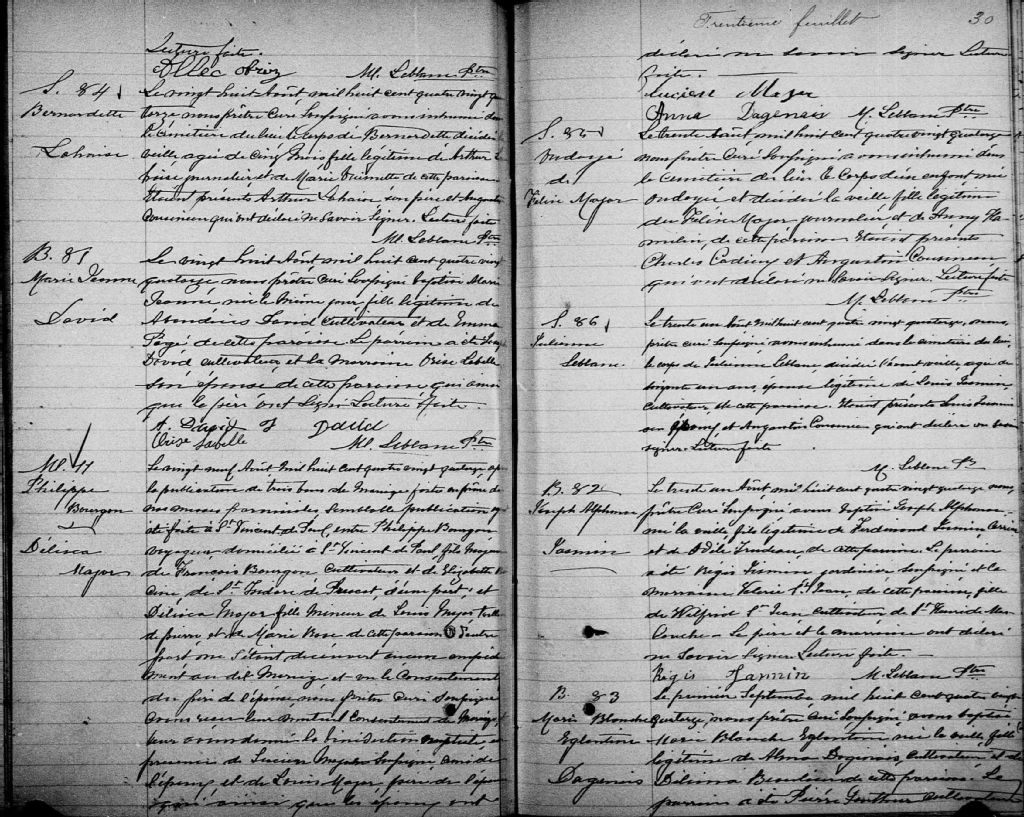 Lecture faite.
M. Leblanc Ptre
S. 84
Bernadette
Lahaise
Le vingt huit Août mil huit cent quatre vingt qua
torze nous prêtre Curé soussigné avons inhumé dans
le cimetière du lieu le corps de Bernadette décédée
veille agée de cinq mois fille légitime de Arthur La
haise journalier et de Marie Ouimette de cette paroisse
Etaient présents Arthur Lahaise son père et Augustin
qui ont déclaré ne savoir signer. Lecture faite
M. Leblanc Ptre
B. 81
Marie Jeanne
David
Le vingt huit Août mil huit cent quatre vingt
quatorze nous prêtre curé soussigné baptisé Marie
Jeanne née le même jour fille légitime de
David Cultivateur et de Emma
Pagé de cette paroisse Le parrain a été
David cultivateur et la marraine Orise Labelle
son épouse de cette paroisse qui ainsi
que le père ont signé Lecture faite.
A. David J David
Orise Labelle M. Leblanc Ptre
M. 11
Philippe
Bourgon
&
Délisca
Major
Le vingt neuf Août mil huit cent quatre vingt quatorze ap
la publication de trois bans de Mariage faite au prône de
nos messes paroissiales semblable publication ay
été faite à St Vincent de Paul, entre Philippe Bourgon
voyageur domicilié à St Vincent de Paul, fils majeur
de Francois Bourgon Cultivateur et de Elizabeth
de St Isidore de Prescot d'une part; et
Délisca Major fille mineure de Louis Major tailleur
de pierre et de Marie Rose de cette paroisse d'autre
part ne s'étant découvert aucun empêche
ment au dit Mariage et vu le Consentement
du père de l'épouse, nous prêtre Curé soussigné
avons reçu leur mutuel Consentement de Mariage et
leur avons donné la bénédiction nuptiale, en
présence de Lucien Major soussigné, ami de
l'époux et de Louis Major, père de l'épouse
ainsi que les époux ont
Trentième feuillet 30
déclaré ne savoir signer Lecture
faite.
Major
Anna Dagenais M. Leblanc Ptre
S. 85
Ondoyé
de
Félix Major
Le trente Août mil huit cent quatre vingt quatorze
nous prêtre Curé soussigné avons inhumé dans
le Cemetière du lieu le Corps d'un enfant né
ondoyé et décédé la veille fille légitime
de Félix Major journalier et de Anny Ha
melin, de cette paroisse Etaient présents
Charles Cadieux et Augustin
qui ont déclaré ne savoir signer. Lecture faite
M. Leblanc Ptre
S. 86
Julienne
Leblanc
Le trente un Août mil huit cent quatre vingt quatorze, nous
prêtre curé soussigné avons inhumé dans le cimetière du lieu,
le corps de Julienne Leblanc, décédée l'avant veille, agée de
soixante un ans, épouse légitime de Louis Jasmin,
Cultivateur, de cette paroisse. Etaient présents Louis Jasmin
son époux et Augustin qui ont déclaré ne savoir
signer. Lecture faite
M. Leblanc Ptre
B. 82
Joseph Alphonse
Jasmin
Le trente un Août mil huit cent quatre vingt quatorze nous
prêtre Curé soussigné avons baptisé Joseph Alphonse
né la veille, fils légitime de Ferdinand Jasmin
et de Odile Trudeau, de cette paroisse. Le parrain
a été Régis Jasmin jardinier soussigné et la
marraine Valerie St Jean, de cette paroisse, fille
de Wilfrid St Jean Cultivateur de St Henri de Mas
couche. Le père et la marraine ont déclaré
ne savoir signer Lecture faite.
Régis Jasmin M. Leblanc Ptre
B. 83
Marie Blanche
Eglantine
Dagenais
Le premier Septembre mil huit cent quatre vingt
quatorze, nous prêtre curé soussigné, avons baptisé
Marie Blanche Eglantine née la veille fille
légitime de Alma Dagenais, cultivateur et de
Délima de cette paroisse. Le
parrain a été Pierre cultivateur